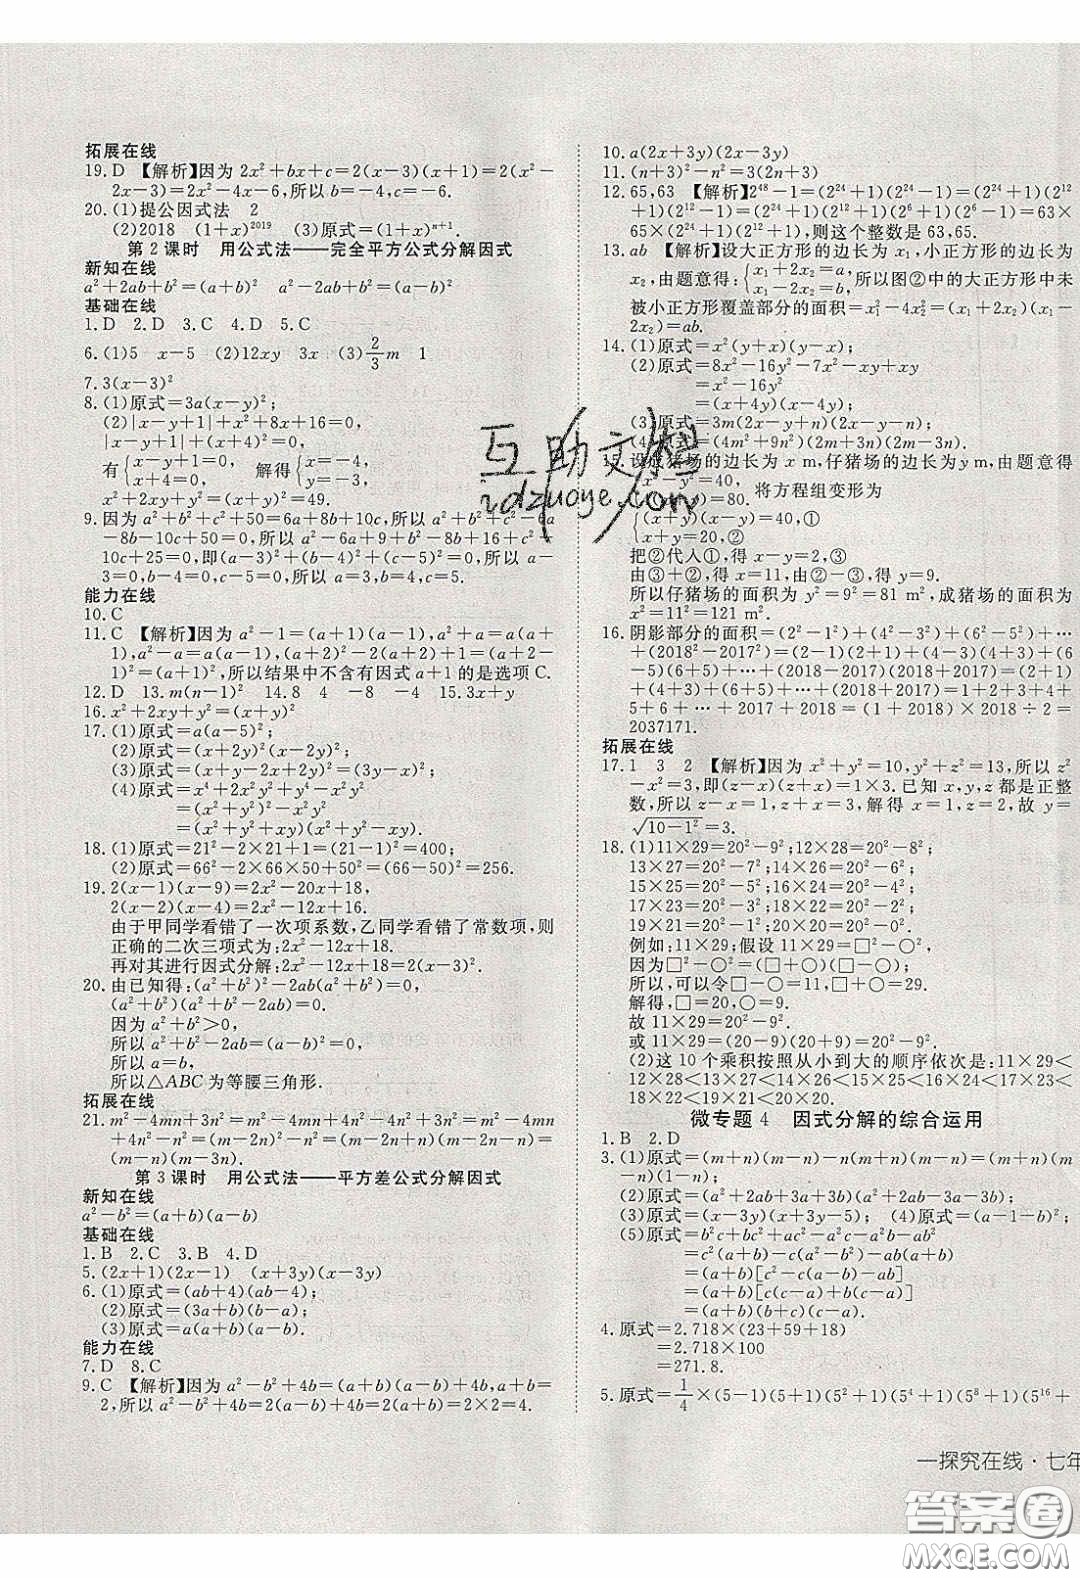 拓展在线
19. D 【解析】因为 2x²+bx+c=2(x-3)(x+1)=2(x²-
2x-3)=2x²-4x-6,所以 b=-4,c=-6.
20. (1)提公因式法 2
(2)2018 (1+x)²⁰¹⁹ (3)原式=(1+x)ⁿ⁺¹.
第 2 课时 用公式法——完全平方公式分解因式
新知在线
a²+2ab+b²=(a+b)² a²-2ab+b²=(a-b)²
基础在线
1. D 2. D 3. C 4. D 5. C
6. (1)5 x-5 (2)12xy 3x (3)2/3 m 1
7. 3(x-3)²
8. (1)原式=3a(x-y)²;
(2)|x-y+1|+x²+8x+16=0,
|x-y+1|+(x+4)²=0.
有{x-y+1=0, x+4=0. 解得{x=-4, y=-3.
x²+2xy+y²=(x+y)²=49.
9. 因为 a²+b²+c²+50=6a+8b+10c,所以 a²+b²+c²-6a
-8b-10c+50=0,所以 a²-6a+9+b²-8b+16+c²-
10c+25=0,即(a-3)²+(b-4)²+(c-5)²=0,所以 a-
3=0,b-4=0,c-5=0,所以 a=3,b=4,c=5.
能力在线
10. C
11. C 【解析】因为 a²-1=(a+1)(a-1),a²+a=a(a+
1),a²-a=a(a-1),(a+2)²-2(a+2)+1=(a+2-
1)²=(a+1)²,所以结果中不含有因式 a+1 的是选项 C.
12. D 13. m(n-1)² 14. 8 4 -8 -4 15. 3x+y
16. x²+2xy+y²=(x+y)²
17. (1)原式=a(a-5)²;
(2)原式=(x+2y)²(x-2y)²;
(3)原式=(x+2)⁴;
(4)原式=x⁴+2x²y²+y⁴-x²y²
=(x²+y²)²-x²y²
=(x²+y²+xy)(x²+y²-xy).
18. (1)原式=21²-2×21+1=(21-1)²=400;
(2)原式=66²-2×66×50+50²=(66-50)²=256.
19. 2(x-1)(x-9)=2x²-20x+18,
2(x-2)(x-4)=2x²-12x+16.
由于甲同学看错了一次项系数,乙同学看错了常数项,则
正确的二次三项式为:2x²-12x+18.
再对其进行因式分解:2x²-12x+18=2(x-3)².
20. 由已知得:(a²+b²)²-2ab(a²+b²)=0,
(a²+b²)(a²+b²-2ab)=0.
因为 a²+b²>0,
所以 a²+b²-2ab=(a-b)²=0,
所以 a=b,
所以△ABC 为等腰三角形.
拓展在线
21. m²-4mn+3n²=m²-4mn+3n²+n²-n²=m²-4mn
+4n²-n²=(m-2n)²-n²=(m-2n-n)(m-2n+n)=
(m-n)(m-3n).
第 3 课时 用公式法——平方差公式分解因式
新知在线
a²-b²=(a+b)(a-b)
基础在线
1. B 2. C 3. B 4. D
5. (2x+1)(2x-1) (x+3y)(x-3y)
6. (1)原式=(ab+4)(ab-4);
(2)原式=(3a+b)(a-b);
(3)原式=(a²+b²)(a+b)(a-b).
能力在线
7. D 8. C
9. C 【解析】因为 a²-b²+4b=(a+b)(a-b)+4b,a+b=
2,所以 a²-b²+4b=2(a-b)+4b=2(a+b)=2×2=4.
10. a(2x+3y)(2x-3y)
11. (n+3)²-n²=3(2n+3)
12. 65,63 【解析】2⁴⁸-1=(2²⁴+1)(2²⁴-1)=(2²⁴+1)(2¹²
+1)(2¹²-1)=(2²⁴+1)(2¹²+1)(2⁶+1)(2⁶-1)=63×
65×(2²⁴+1)(2¹²+1),则这个整数是 63,65.
13. ab 【解析】设大正方形的边长为 x₁,小正方形的边长为
x₂,由题意得:{x₁+2x₂=a, x₁-2x₂=b.所以图②中的大正方形中未
被小正方形覆盖部分的面积=x₁²-4x₂²=(x₁+2x₂)(x₁-
2x₂)=ab.
14. (1)原式=x²(y+x)(y-x);
(2)原式=8x²-16y²-7x²-xy+xy
=x²-16y²
=(x+4y)(x-4y);
(3)原式=3m(2x-y+n)(2x-y-n);
(4)原式=(4m²+9n²)(2m+3n)(2m-3n).
15. 设成猪场的边长为 x m,仔猪场的边长为 y m,由题意得
x²-y²=40,
=80. 将方程组变形为
{(x+y)(x-y)=40,①
x+y=20,②
把②代入①,得 x-y=2,③
由③+②,得 x=11,由②-③,得 y=9.
所以仔猪场的面积为 y²=9²=81 m²,成猪场的面积为
x²=11²=121 m².
16. 阴影部分的面积=(2²-1²)+(4²-3²)+(6²-5²)+…
+(2018²-2017²)=(2-1)(2+1)+(4-3)(4+3)+(6
-5)(6+5)+…+(2018-2017)(2018+2017)=(2+1)
+(4+3)+(6+5)+…+(2018+2017)=1+2+3+4+
5+6+…+2017+2018=(1+2018)×2018÷2=
2037171.
拓展在线
17. 1 3 2 【解析】因为 x²+y²=10,y²+z²=13,所以 z²
-x²=3,即(z-x)(z+x)=1×3. 已知 x,y,z 都是正整
数,所以 z-x=1,z+x=3,解得 x=1,z=2,故 y=
√(10-1²)=3.
18. (1)11×29=20²-9²;12×28=20²-8²;
13×27=20²-7²;14×26=20²-6²;
15×25=20²-5²;16×24=20²-4²;
17×23=20²-3²;18×22=20²-2²;
19×21=20²-1²;20×20=20²-0².
例如:11×29;假设 11×29=□²-○²,
因为□²-○²=(□+○)(□-○).
所以,可以令□-○=11,□+○=29.
解得,□=20,○=9.
故 11×29=20²-9².
或 11×29=(20-9)(20+9)=20²-9².
(2)这 10 个乘积按照从小到大的顺序依次是:11×29<
12×28<13×27<14×26<15×25<16×24<17×23<
18×22<19×21<20×20.
微专题 4 因式分解的综合运用
1. B 2. D
3. (1)原式=(m+n)(m-n)-(m-n)=(m-n)(m+n-1);
(2)原式=(a²+2ab+3a+b)(a²+2ab-3a-3b);
(3)原式=(x-3y)(x-3y+8); (4)原式=(a-1-b)²;
(5)原式=b²c+bc²+ac²-a²c-a²b-ab²
=c²(a+b)-c(a²-b²)-ab(a+b)
=(a+b)[c²-c(a-b)-ab)]
=(a+b)[c(c-a)+b(c-a)]
=(a+b)(b+c)(c-a).
4. 原式=2.718×(23+59+18)
=2.718×100
=271.8.
5. 原式=1/4×(5-1)(5+1)(5²+1)(5⁴+1)(5⁸+1)(5¹⁶+
一探究在线·七年
互助文档
zdzuoye.com
答案圈
MXQE.COM